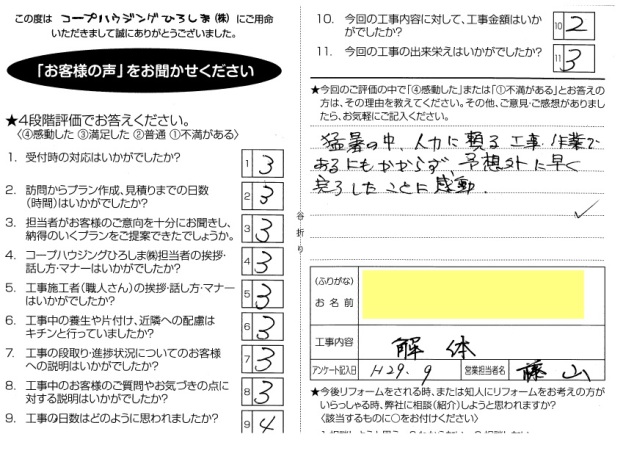 この度は コープハウジングひろしま(株) にご用命
いただきまして誠にありがとうございました。
「お客様の声」をお聞かせください
★4段階評価でお答えください。
〈④感動した ③満足した ②普通 ①不満がある〉
1. 受付時の対応はいかがでしたか?
1 3
2. 訪問からプラン作成、見積りまでの日数
(時間)はいかがでしたか?
2 3
3. 担当者がお客様のご意向を十分にお聞きし、
納得のいくプランをご提案できたでしょうか。
3 3
4. コープハウジングひろしま㈱担当者の挨拶・
話し方・マナーはいかがでしたか?
4 3
5. 工事施工者(職人さん)の挨拶・話し方・マナー
はいかがでしたか?
5 3
6. 工事中の養生や片付け、近隣への配慮は
キチンと行っていましたか?
6 3
7. 工事の段取り・進捗状況についてのお客様
への説明はいかがでしたか?
7 3
8. 工事中のお客様のご質問やお気づきの点に
対する説明はいかがでしたか?
8 3
9. 工事の日数はどのように思われましたか?
9 4
谷折り
10. 今回の工事内容に対して、工事金額はいか
がでしたか?
10 2
11. 今回の工事の出来栄えはいかがでしたか?
11 3
★今回のご評価の中で「④感動した」または「①不満がある」とお答えの
方は、その理由を教えてください。その他、ご意見・ご感想がありました
ら、お気軽にご記入ください。
猛暑の中、人力に頼る工事作業で
あるにもかからず、予想外に早く
完了したことに感動.
(ふりがな)
お名前
工事内容
解体
アンケート記入日
H29.9
営業担当者名
藤山
★今後リフォームをされる時、または知人にリフォームをお考えの方が
いらっしゃる時、弊社に相談(紹介)しようと思われますか?
〈該当するものに○をお付けください〉